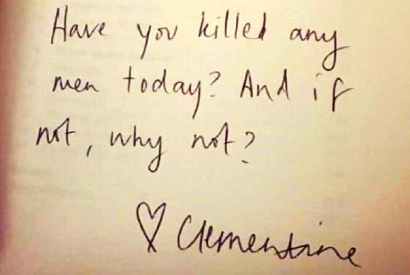 Have you killed any
men today? And if
not, why not?
♡ Clementine